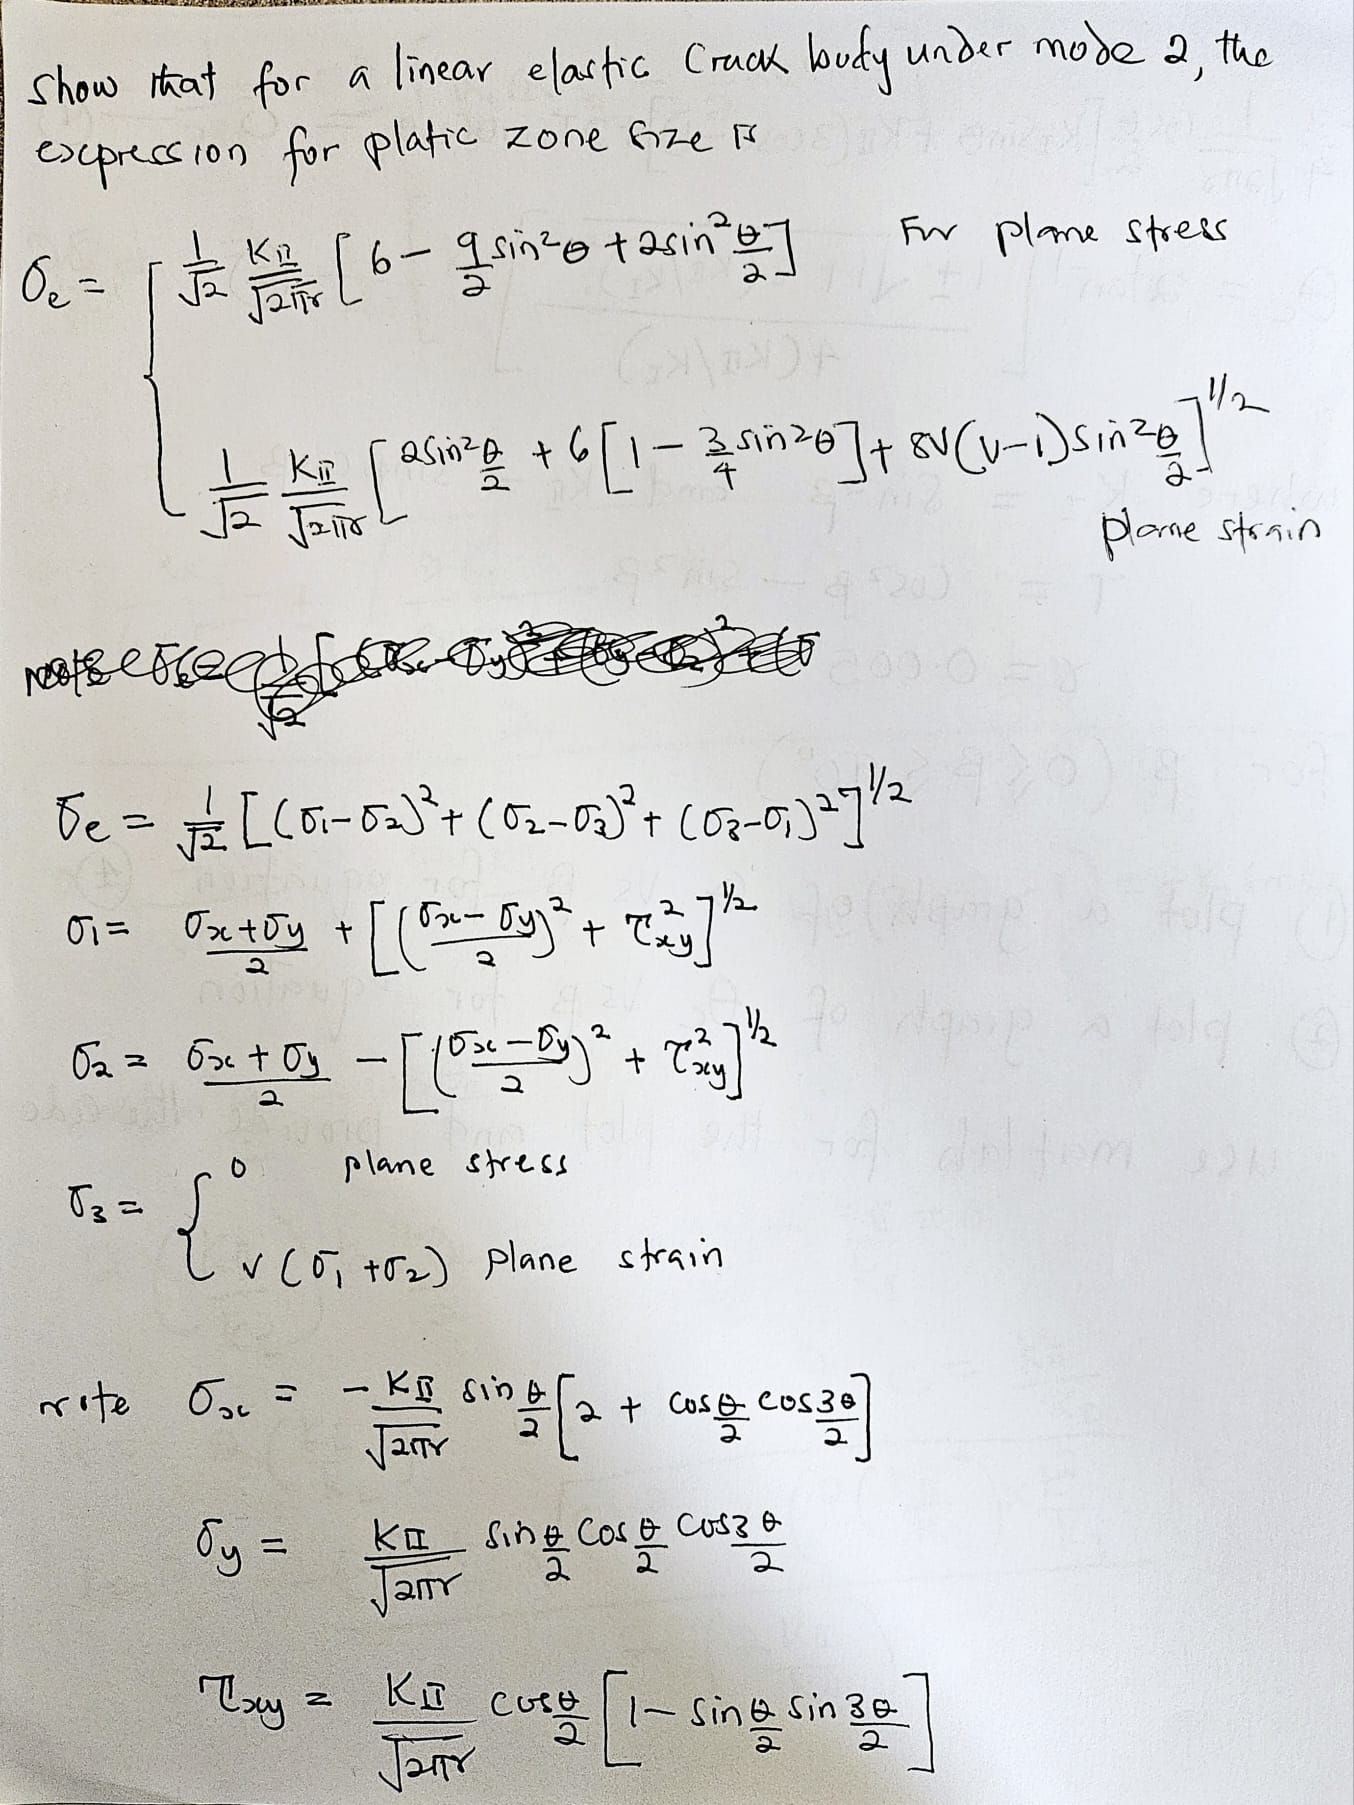 Show that for a linear elastic Crack body under mode 2, the
expression for platic zone size is
σe = { 1/√2 KII/√2πr [6 - 9/2 sin²θ + 2sin²θ/2] For plane stress
1/√2 KII/√2πr [2sin²θ/2 + 6[1 - 3/4 sin²θ] + 8ν(ν-1)sin²θ/2]^1/2
plane strain
σe = 1/√2 [(σ1-σ2)² + (σ2-σ3)² + (σ3-σ1)²]^1/2
σ1 = σx+σy/2 + [(σx-σy/2)² + τ²xy]^1/2
σ2 = σx+σy/2 - [(σx-σy/2)² + τ²xy]^1/2
σ3 = { 0 plane stress
ν(σ1+σ2) plane strain
note σx = -KII/√2πr sin θ/2 [2 + cos θ/2 cos 3θ/2]
σy = KII/√2πr sin θ/2 cos θ/2 cos 3θ/2
τxy = KII/√2πr cos θ/2 [1 - sin θ/2 sin 3θ/2]